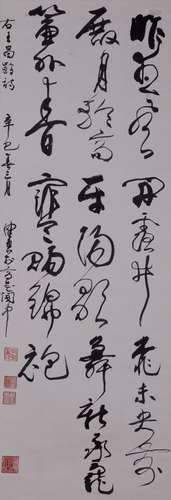 昨夜風開露井桃未央前
殿月輪高平陽歌舞新承寵
簾外春寒賜錦袍
右王昌齡詩 辛巳春三月